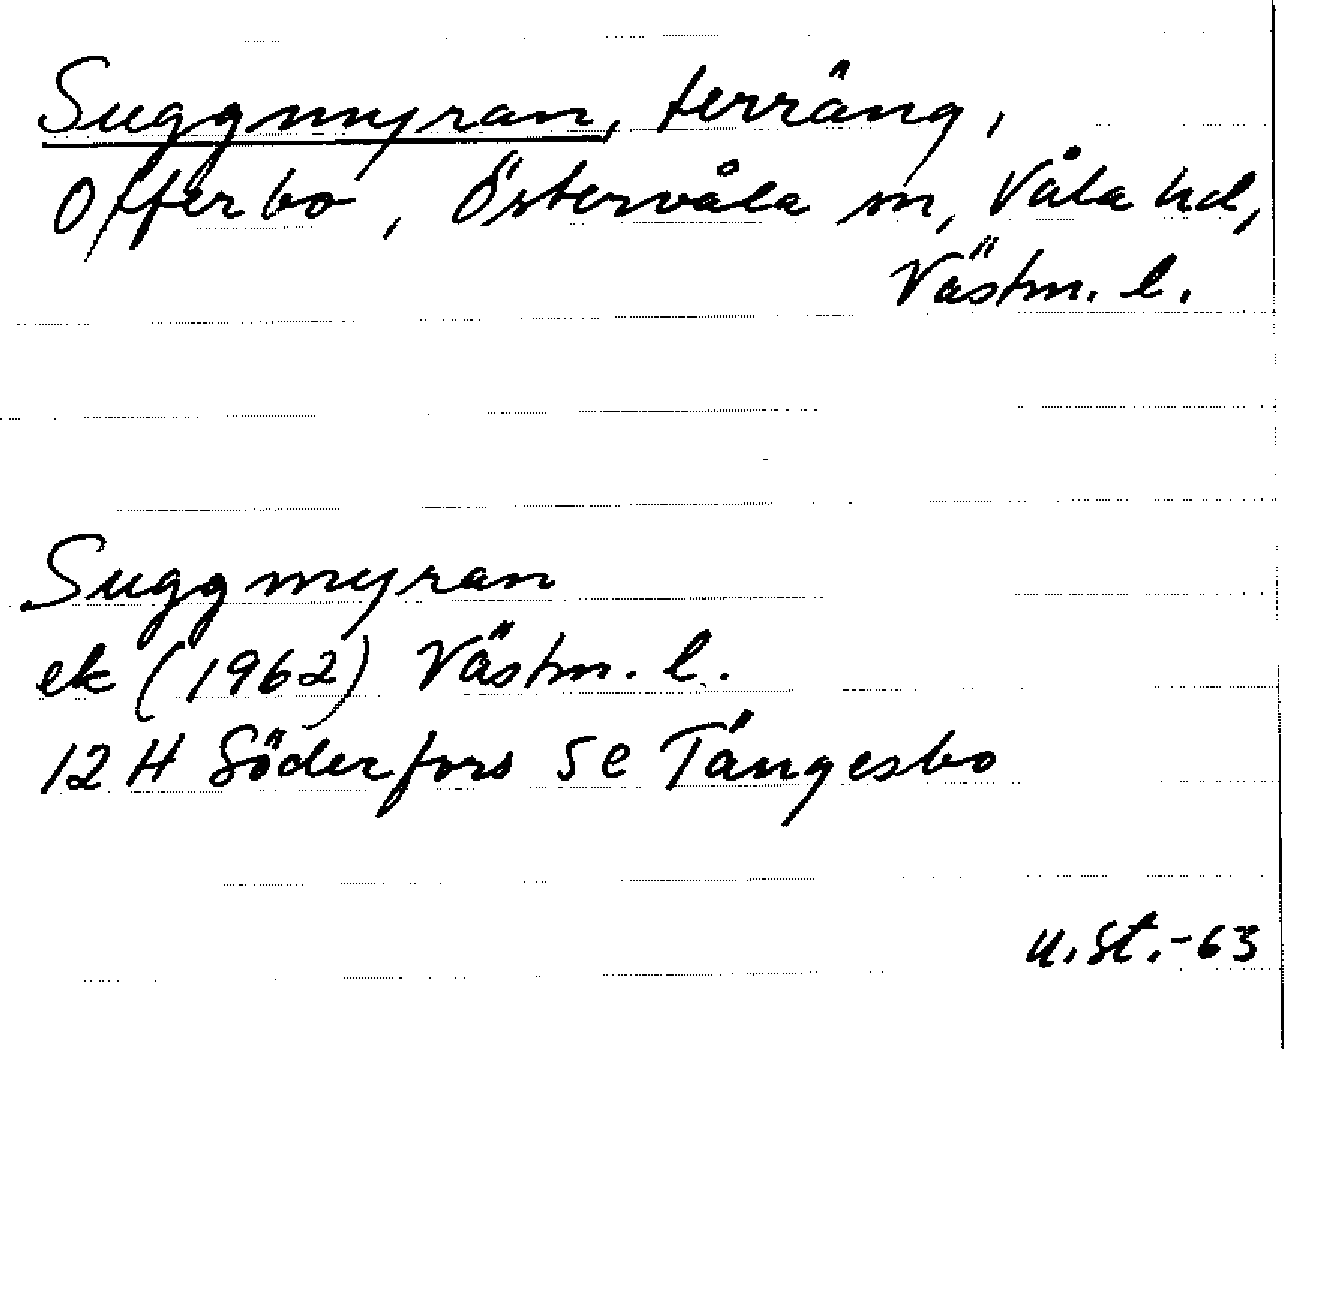 Suggmyran, terräng,
Offerbo, Östervåla sn, Våla hd,
Västm. l.
Suggmyran
ek (1962) Västm. l.
12 H Söderfors 5 e Tängesbo
U.St.-63